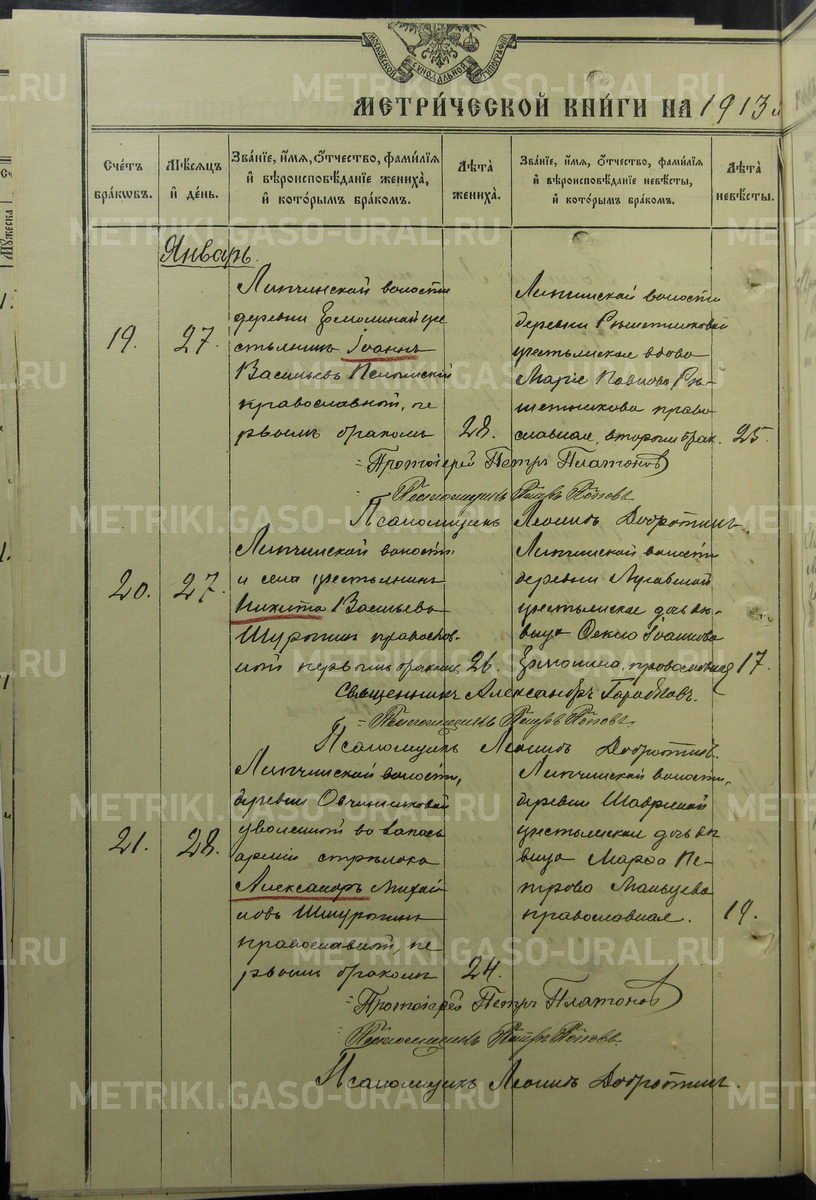 МОСКОВСКОЙ СѴНОДАЛЬНОЙ ТИПОГРАФІИ
МЕТРИ́ЧЕСКОЙ КНИ́ГИ НА 1913
Сче́тъ бра́ковъ.
Мѣ́сяцъ и де́нь.
Зва́нїе, и́мя, о́тчество, фами́лїя и вѣроисповѣ́данїе жениха̀, и кото́рымъ бра́комъ.
Лѣта̀ жениха̀.
Зва́нїе, и́мя, о́тчество, фами́лїя и вѣроисповѣ́данїе невѣ́сты, и кото́рымъ бра́комъ.
Лѣта̀ невѣ́сты.
Январь.
19.
27.
Липчинской волости
деревни Ермолиной кре
стьянинъ Іоаннъ
Васильевъ
православный, пе
рвымъ бракомъ
28.
Липчинской волости
деревни Рѣшетниковой
крестьянская вдова
Марія Павлова Рѣ-
шетникова право
славная, вторымъ брак.
25.
Протоіерей Петръ Платоновъ
Псаломщикъ Петръ Поповъ
Псаломщикъ Леонидъ Добротинъ.
20.
27.
Липчинской волости
и села крестьянинъ
Никита Васильевъ
Шкурыгинъ православ-
ный первымъ бракомъ
26.
Липчинской волости
деревни Луговской
крестьянская дочь дѣ
вица Оекла Іоаннова
Ермолина, православная
17.
Священникъ Александръ
Псаломщикъ Петръ Поповъ
Псаломщикъ Леонидъ Добротинъ.
21.
28.
Липчинской волости,
деревни Овчинниковой
уволенный въ запасъ
арміи стрѣлокъ
Александръ Михай
ловъ
православный, пе
рвымъ бракомъ
24.
Липчинской волости,
деревни
крестьянская дочь дѣ
вица Марѳа Пе-
трова Мальцева
православная.
19.
Протоіерей Петръ Платоновъ
Псаломщикъ Петръ Поповъ.
Псаломщикъ Леонидъ Добротинъ.
METRIKI.GASO-URAL.RU